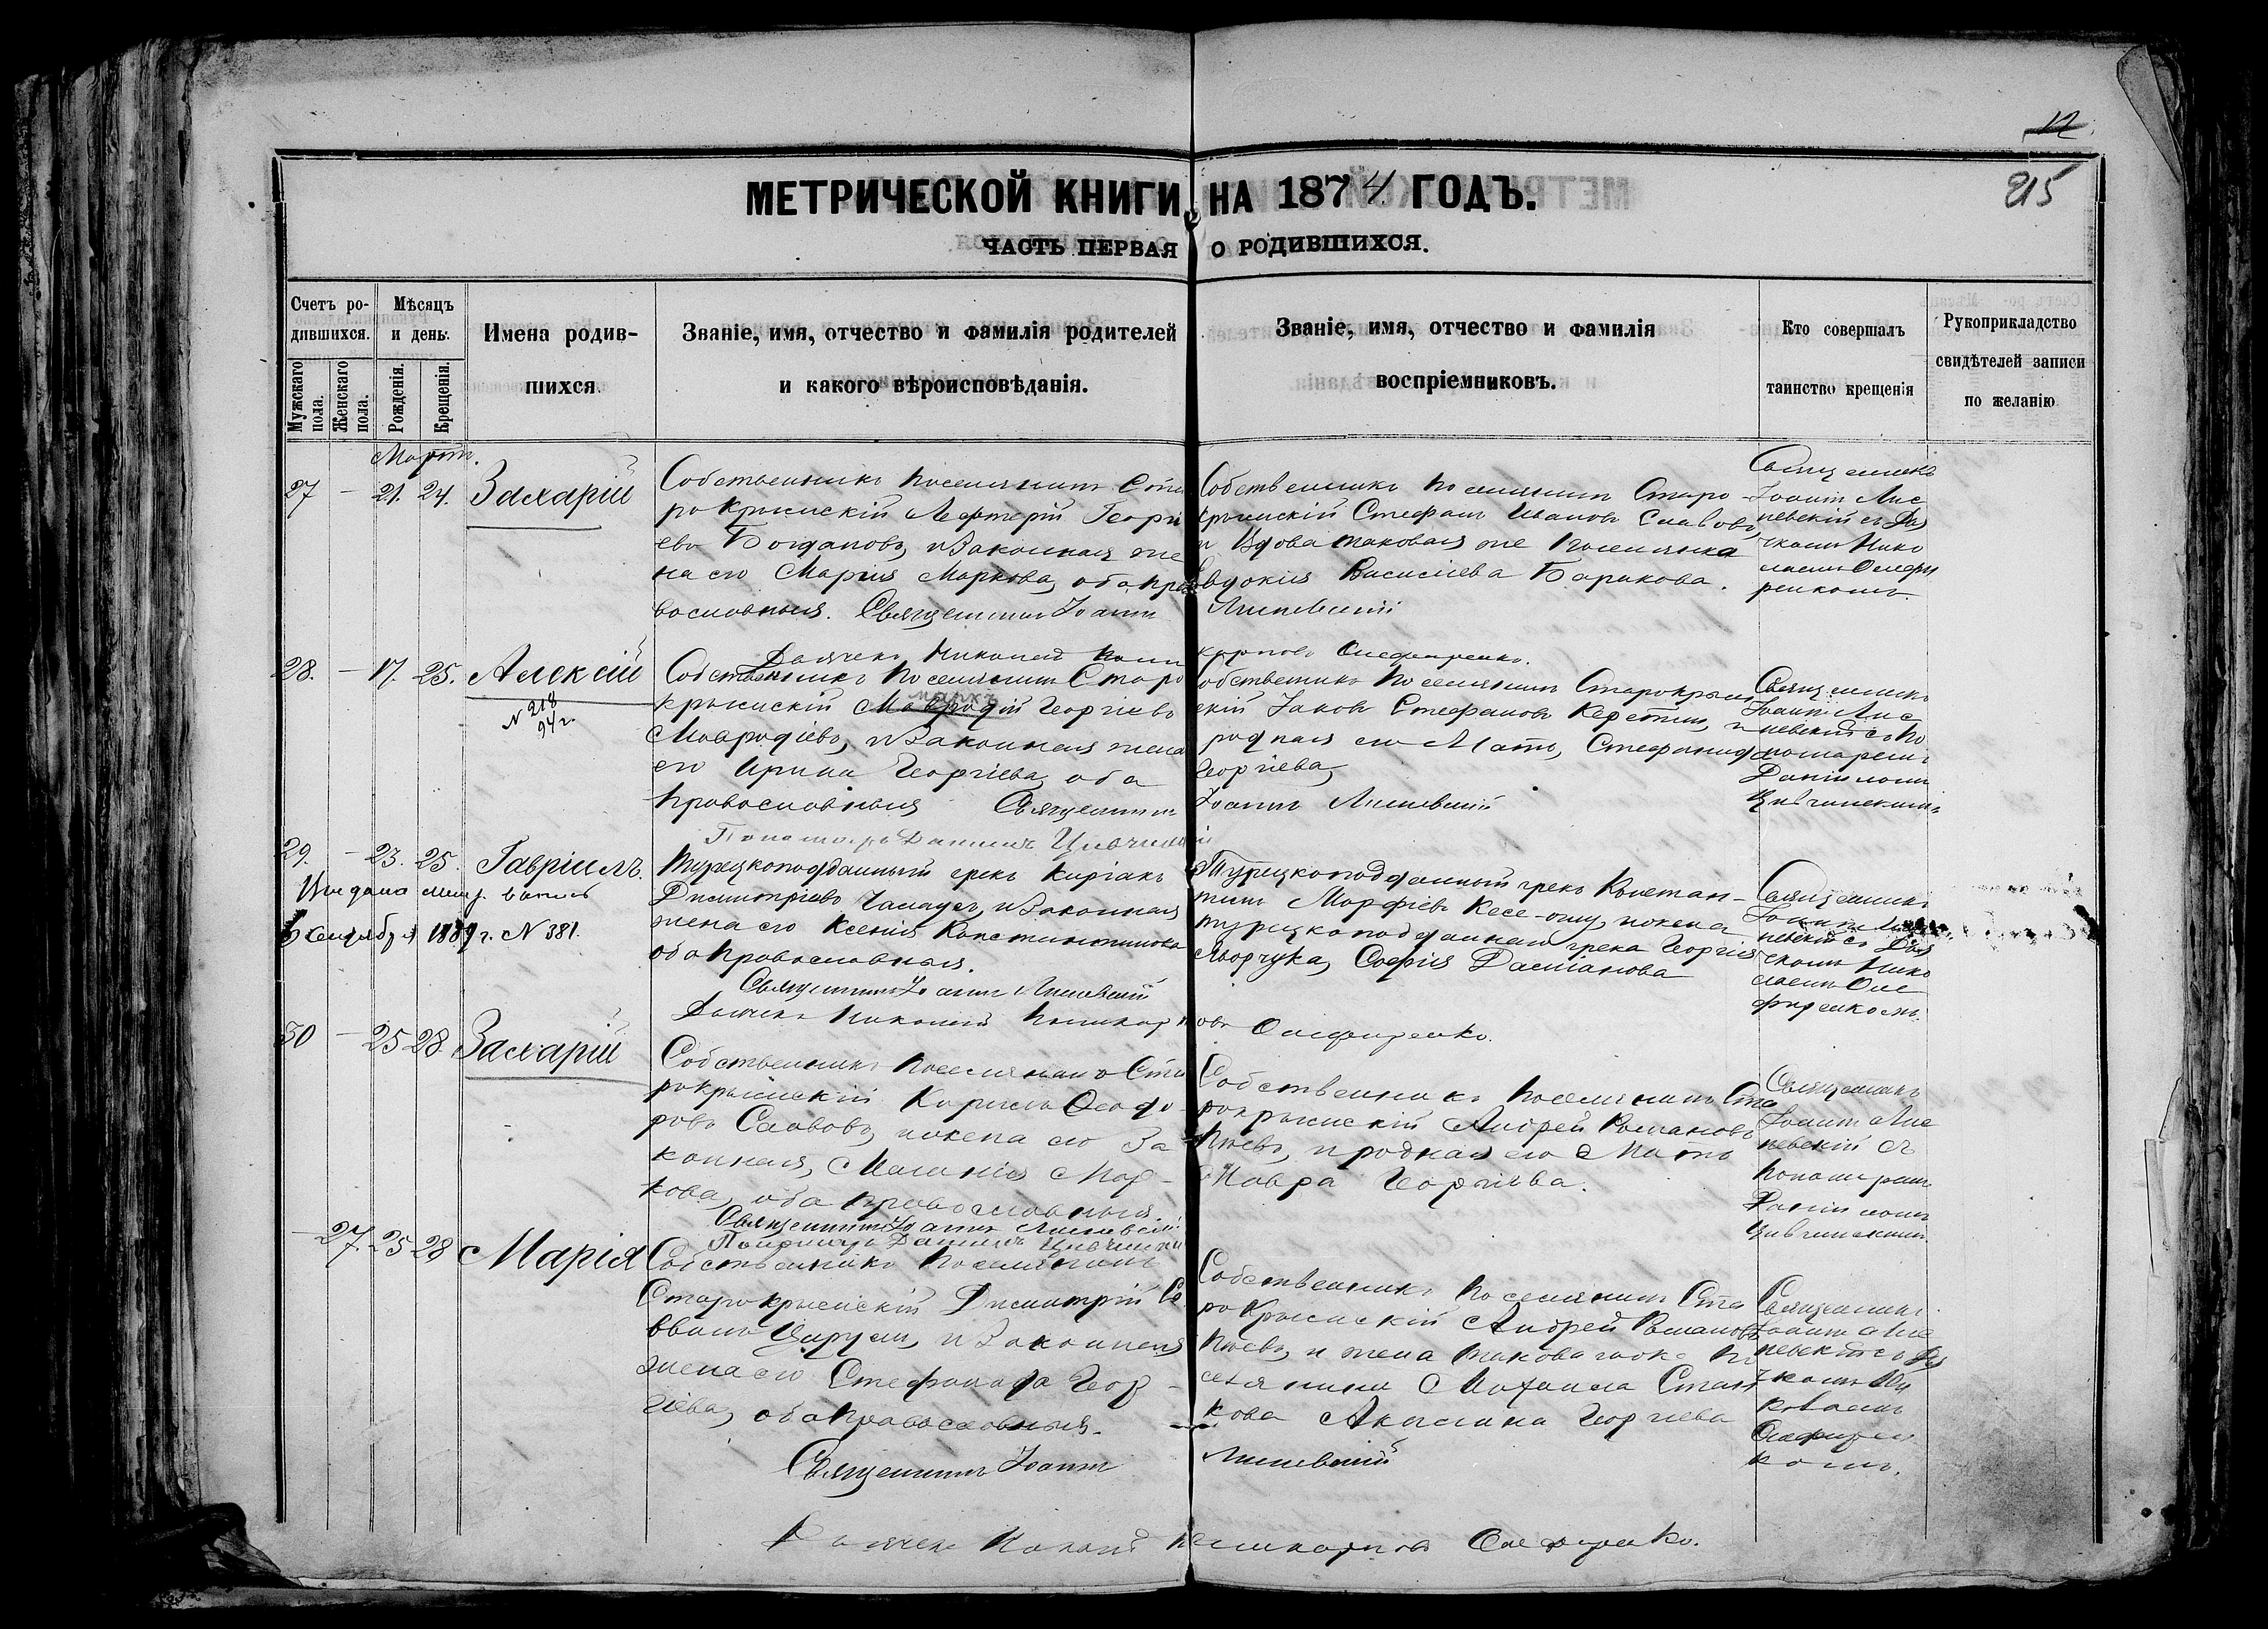 12
215
МЕТРИЧЕСКОЙ КНИГИ НА 1874 ГОДЪ.
ЧАСТЬ ПЕРВАЯ О РОДИВШИХСЯ.
Счетъ ро-
дившихся.
Мужескаго пола.
Женскаго пола.
Мѣсяцъ
и день.
Рожденія.
Крещенія.
Имена родив-
шихся
Званіе, имя, отчество и фамилія родителей
и какого вѣроисповѣданія.
Званіе, имя, отчество и фамилія
воспріемниковъ.
Кто совершалъ
таинство крещенія
Рукоприкладство
свидѣтелей записи
по желанію
Мартъ.
27 – 21. 24. Захарій
Собственникъ поселянинъ Ста
рокрымскій Лефтерій Георгі
евъ Богдановъ, и законная же
на его Марія Маркова, оба пра
вославныя. Священникъ Іоаннъ
Собственникъ поселянинъ Старо-
крымскій Стефанъ Ивановъ Славовъ,
и вдова таковая же поселянка
Евдокія Василіева Барикова.
Священникъ
Іоаннъ Лис
невскій съ Дья
чкомъ Нико
лаемъ Олефи
ренкомъ.
Дьячекъ Николай
28. – 17. 25. Алексій
N 218
94 г.
Собственникъ поселянинъ Старо
маркъ
крымскій Мавродій Георгіевъ
Мавродіевъ, и законная жена
его Ирина Георгіева, оба
православныя Священникъ
Собственникъ поселянинъ Старокрым
скій Іаковъ Стефановъ и
родная его Мать, Стефанида
Георгіева,
Іоаннъ
Священникъ
Іоаннъ Лис
невскій съ По
номаремъ
Даніиломъ
Пономарь Даніилъ
29. – 23. 25. Гавріилъ.
Выдана метр. выпись
Сентября 1889 г. N 381.
Турецкоподданный грекъ Киріакъ
Димитріевъ и законная
жена его Ксенія Константинова
оба православныя.
Священникъ Іоаннъ
Турецкоподданный грекъ Констан-
тинъ и жена
турецкоподданнаго грека Георгія
Софія Даміанова
Священникъ
Іоаннъ Лис
невскій съ Дья
чкомъ Нико
лаемъ Оле
фиренкомъ.
Дьячекъ Николай Поликарповъ Олефиренко.
30 – 25 28. Захарій
Собственникъ поселянинъ Ста
рокрымскій Кирилъ Ѳеодо-
ровъ Саввовъ, и жена его за
конная, Меланія Мар-
кова, оба православныя
Священникъ Іоаннъ
Пономарь Даніилъ
Собственникъ поселянинъ Ста
рокрымскій Андрей Романовъ
и родная его Мать
Мавра Георгіева.
Священникъ
Іоаннъ Лис
невскій съ
Пономаремъ
Даніиломъ
– 27. 25 28 Марія
Собственникъ поселянинъ
Старокрымскій Димитрій Са
ввинъ и законная
жена его Стефанида Геор-
гіева, оба православныя.
Священникъ Іоаннъ
Собственникъ поселянинъ Ста
рокрымскій Андрей Романовъ
и жена таковаго же по
селянина Михаила
Акилина Георгіева
Священникъ
Іоаннъ Лис
невскій съ Дья
чкомъ Ни
колаемъ
Олефирен
комъ.
Дьячекъ Николай Поликарповъ Олефиренко.